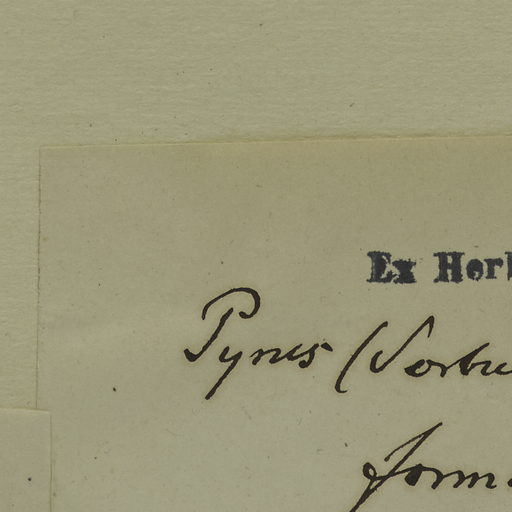 Ex Herb
Pyrus (Sorbu
form.